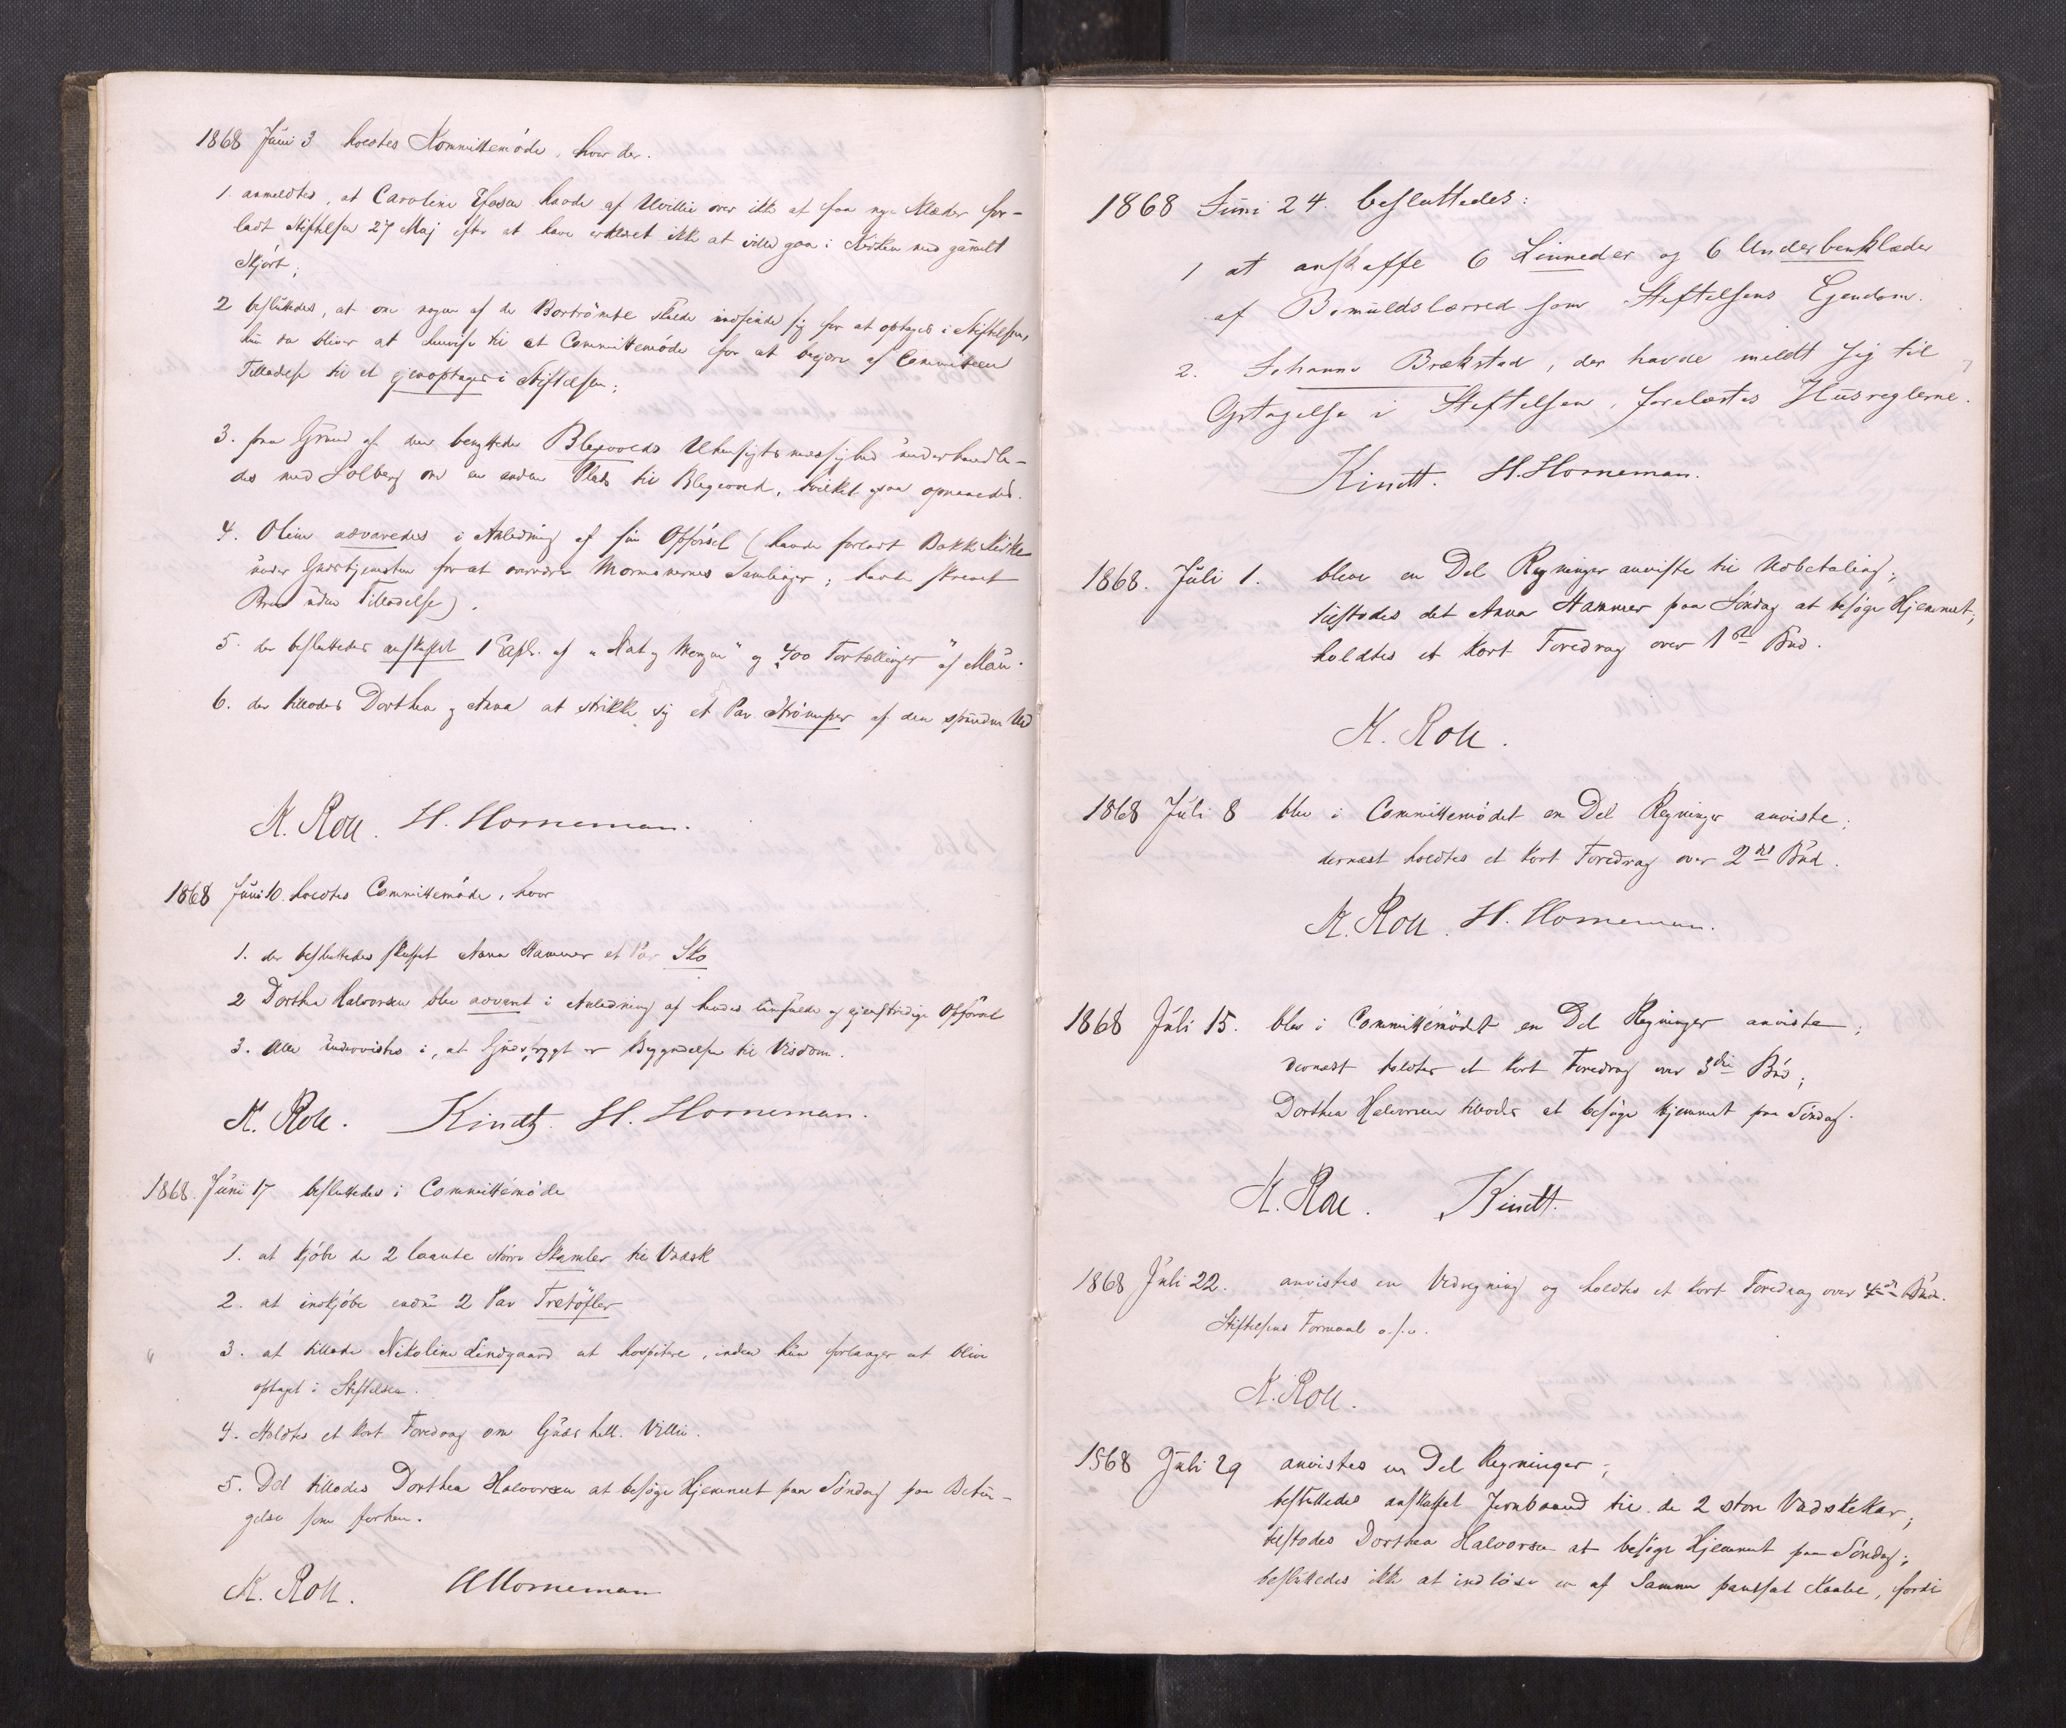 1868 Juni 3 holdtes Kommittemöde, hvor der.
1. anmeldtes, at Caroline havde af Uvillie over ikke at faa nye Klæder for-
ladt Stiftelsen 27 Maj efter at have erklæret ikke at ville gaa i Kirken med gammelt
Skjört;
2 besluttedes, at om nogen af de Bortrömte skulde indfinde sig for at optages i Stiftelsen,
hun da bliver at henvise til et Committemöde for at begjære af Committeen
Tilladelse til at gjenoptages i Stiftelsen;
3. paa Grund af den benyttede Blegevolds Uhensigtsmæssighed underhandle-
des med Solberg om en anden Plads til Blegevold, hvilket ogsaa opnaaedes.
4. Oline advaredes i Anledning af sin Opförsel (havde forladt Bakke Kirke
under Gudstjenesten for at overvære Mormonernes Samlinger; havde skrevet
Brev uden Tilladelse).
5. der besluttedes anskaffet 1 Expl. af "Nat og Morgen" og "400 Fortællinger" af Mau.
6. der tillodes Dorthea og Anna at strikke sig et Par Strömper af den spundne Uld
K. Roll. H. Horneman.
1868 Juni 10. holdtes Committemöde, hvor
1. der besluttedes skaffet Anna Hammer et Par Sko
2 Dorthea Halvorsen blev advaret i Anledning af hendes og gjenstridige Opförsel
3. Alle underviistes i, at Gudsfrygt er Begyndelsen til Visdom.
K. Roll. Kindt. H. Horneman.
1868. Juni 17 besluttedes i Committémöde
1. at kjöbe de 2 laante större Skamler til Vadsk
2. at indkjöbe endnu 2 Par Tretöfler
3. at tillade Nikoline Lindgaard at hospitere, inden hun forlanger at blive
optaget i Stiftelsen.
4. Holdtes et kort Foredrag om Guds hell. Villie.
5. Det tillodes Dorthea Halvorsen at besöge Hjemmet paa Söndag paa Betin-
gelse som forhen.
K. Roll. H Horneman
1868 Juni 24. besluttedes:
1 at anskaffe 6 Linneder og 6 Underbenklæder
af Bomuldslærred som Stiftelsens Ejendom.
2. Johanna Brækstad, der havde meldt sig til
Optagelse i Stiftelsen, forelæstes Husreglerne.
Kindt. H. Horneman.
1868. Juli 1. bleve en Del Regninger anviste til Udbetaling;
tilstodes det Anna Hammer paa Söndag at besöge Hjemmet;
holdtes et kort Foredrag over 1ste Bud.
K. Roll.
1868 Juli 8 blev i Committemödet en Del Regninger anviste;
dernæst holdtes et kort Foredrag over 2det Bud.
K. Roll. H. Horneman.
1868 Juli 15. blev i Committémödet en Del Regninger anviste;
dernæst holdtes et kort Foredrag over 3die Bud;
Dorthea Halvorsen tillodes at besöge Hjemmet paa Söndag.
K. Roll. Kindt.
1868 Juli 22. anvistes en Vedregning og holdtes et kort Foredrag over 4de Bud.
Stiftelsens Formaal o.s.v.
K. Roll.
1868 Juli 29 anvistes en Del Regninger;
besluttedes anskaffet Jernbaand til de 2 store Vadskekar;
tilstodes Dorthea Halvorsen at besöge Hjemmet paa Söndag;
besluttedes ikke at indlöse en af Samme pantsat Kaabe, fordi